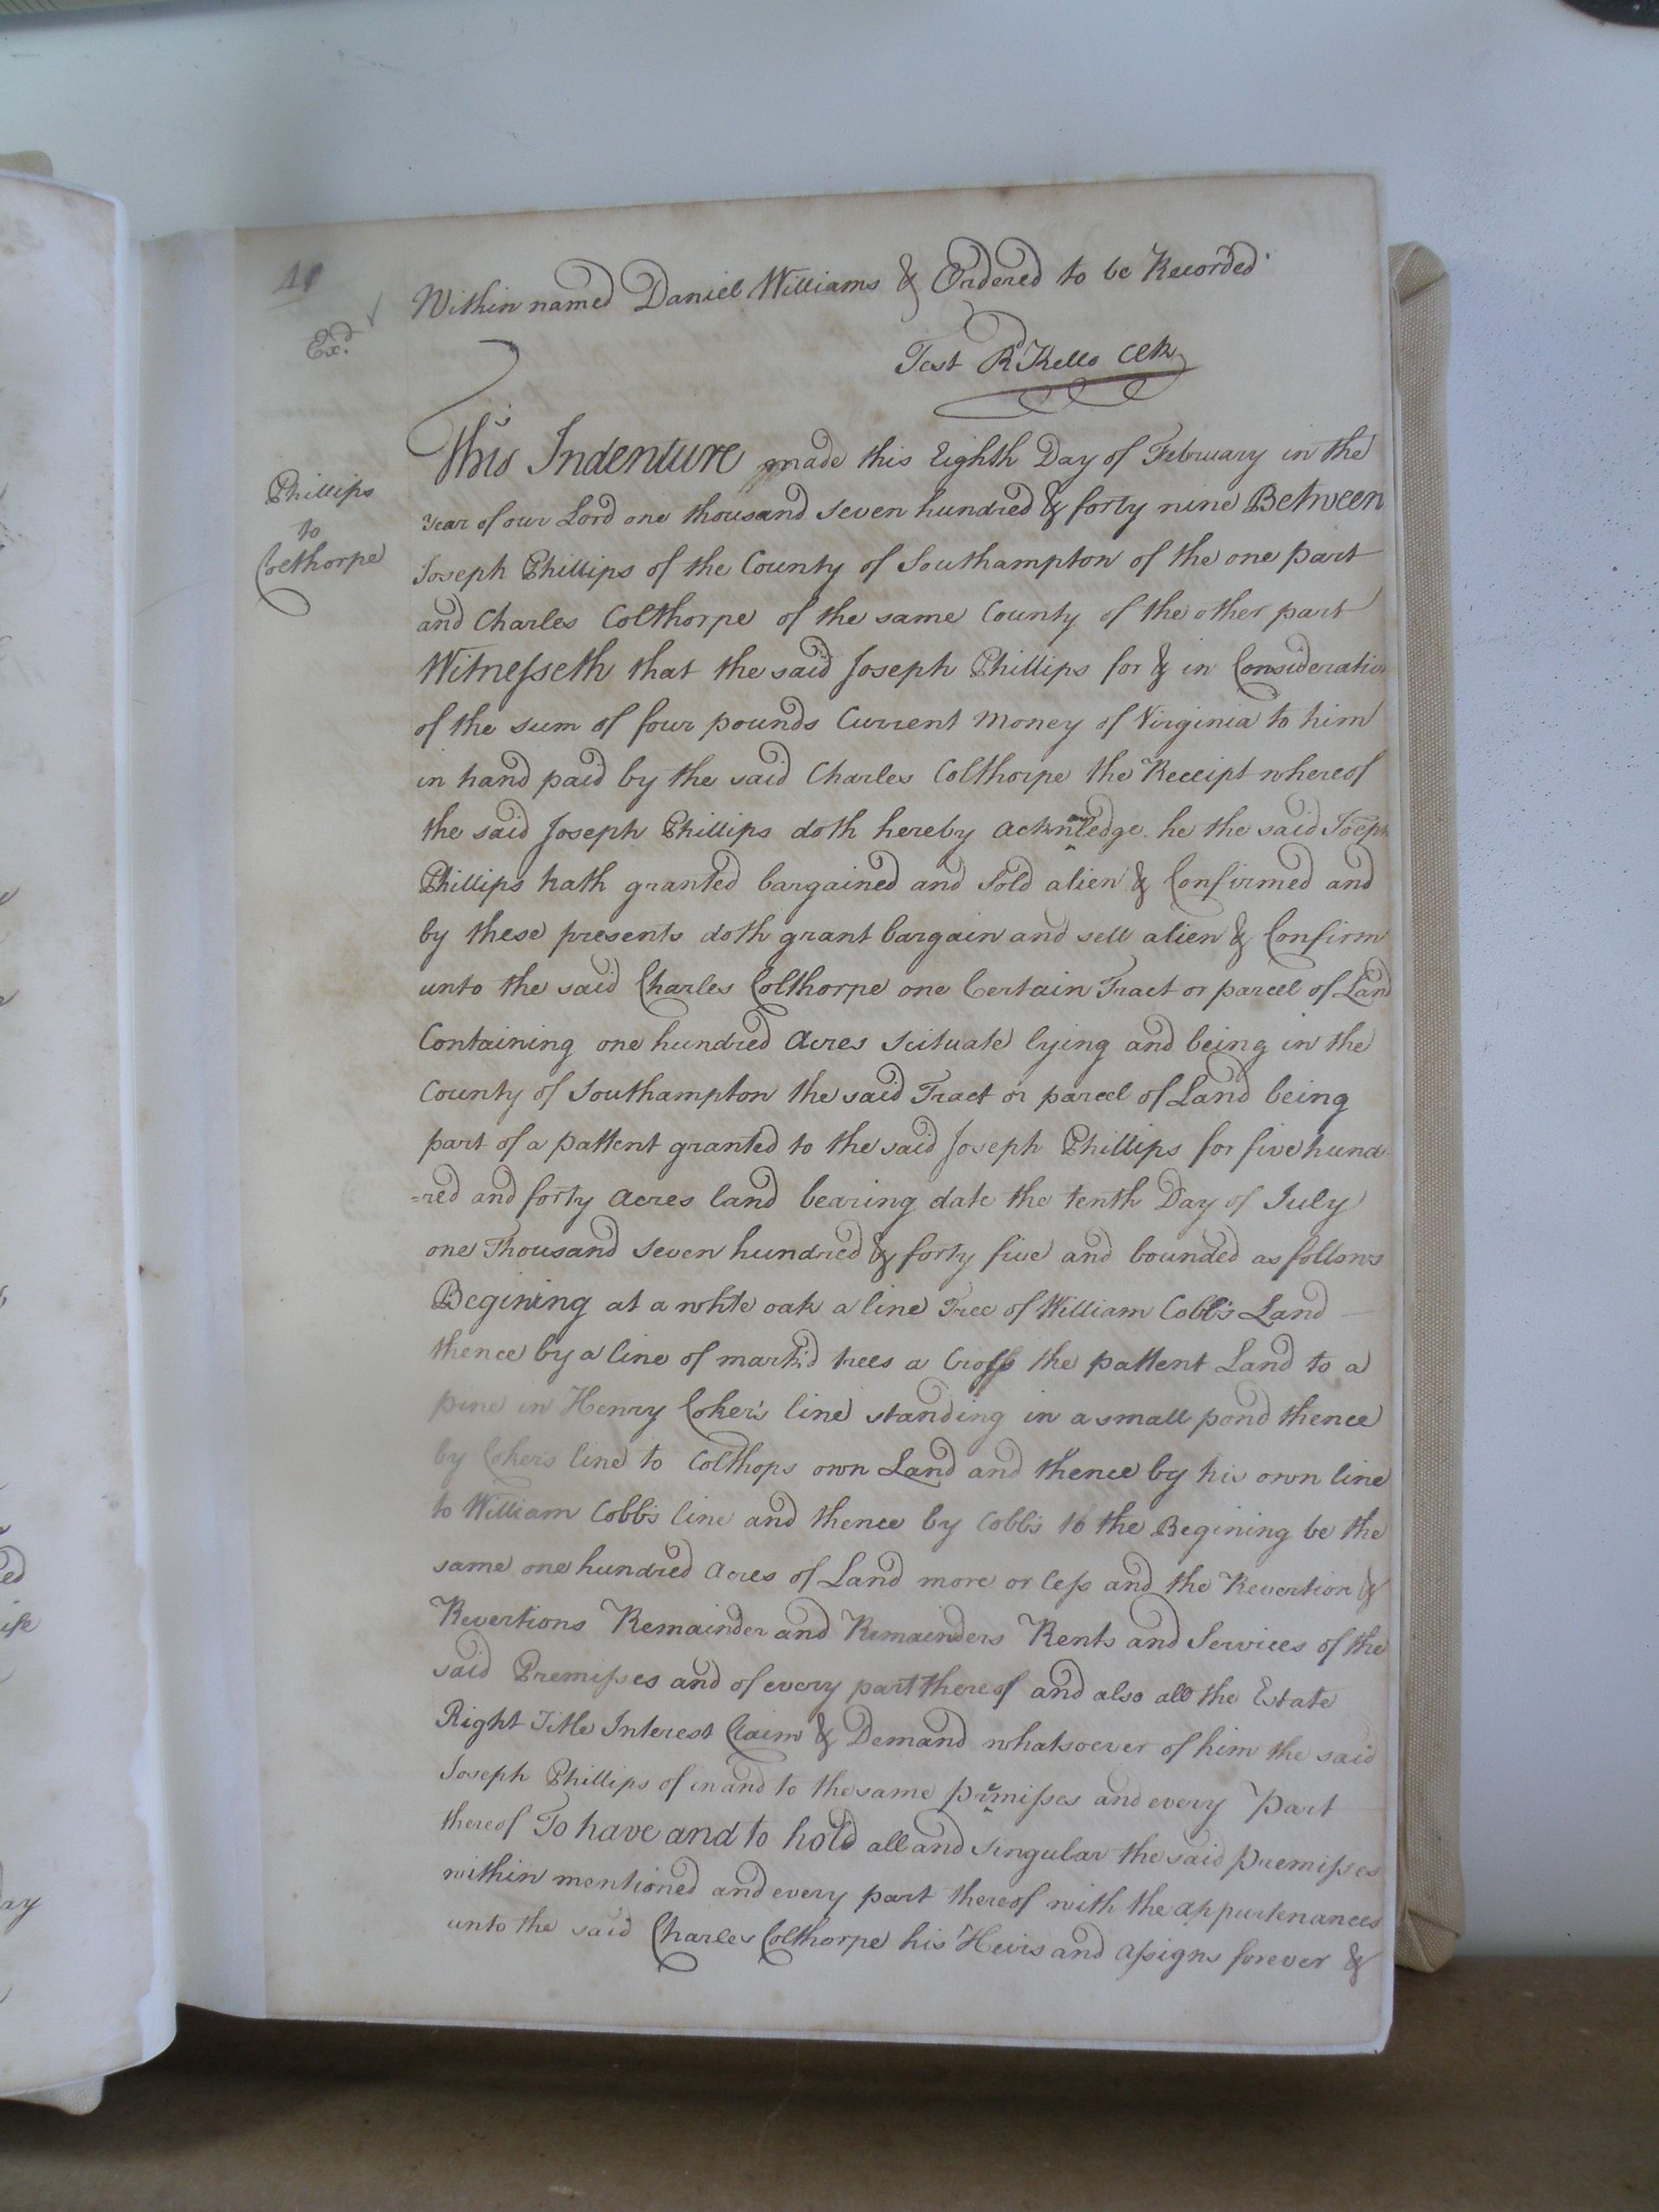 Within named Daniel Williams & Ordered to be Recorded
Exd
Test R Kello Clk
This Indenture made this Eighth Day of February in the
Phillips
to
Colthorpe
year of our Lord one thousand seven hundred & forty nine Between
Joseph Phillips of the County of Southampton of the one part
and Charles Colthorpe of the same County of the other part
Witnesseth that the said Joseph Phillips for & in Consideration
of the sum of four pounds Current money of Virginia to him
in hand paid by the said Charles Colthorpe the Receipt whereof
the said Joseph Phillips doth hereby acknowledge he the said Joseph
Phillips hath granted bargained and Sold alien & Confirmed and
by these presents doth grant bargain and sell alien & Confirm
unto the said Charles Colthorpe one Certain Tract or parcel of Land
Containing one hundred acres scituate lying and being in the
County of Southampton the said Tract or parcel of Land being
part of a pattent granted to the said Joseph Phillips for five hund
=red and forty acres land bearing date the tenth Day of July
one Thousand Seven hundred & forty five and bounded as follows
Begining at a white oak a line Tree of William Cobb's Land
thence by a line of mark'd trees a Cross the pattent Land to a
pine in Henry Coker's line standing in a small pond thence
by Coker's line to Colthops own Land and thence by his own line
to William Cobb's line and thence by Cobb's to the Begining be the
same one hundred acres of Land more or less and the Revertion &
Revertions Remainder and Remainders Rents and Services of the
said Premisses and of every part thereof and also all the Estate
Right Title Interest Claim & Demand whatsoever of him the said
Joseph Phillips of in and to the same premisses and every Part
thereof To have and to hold all and singular the said premisses
within mentioned and every part thereof with the appurtenances
unto the said Charles Colthorpe his Heirs and assigns forever &